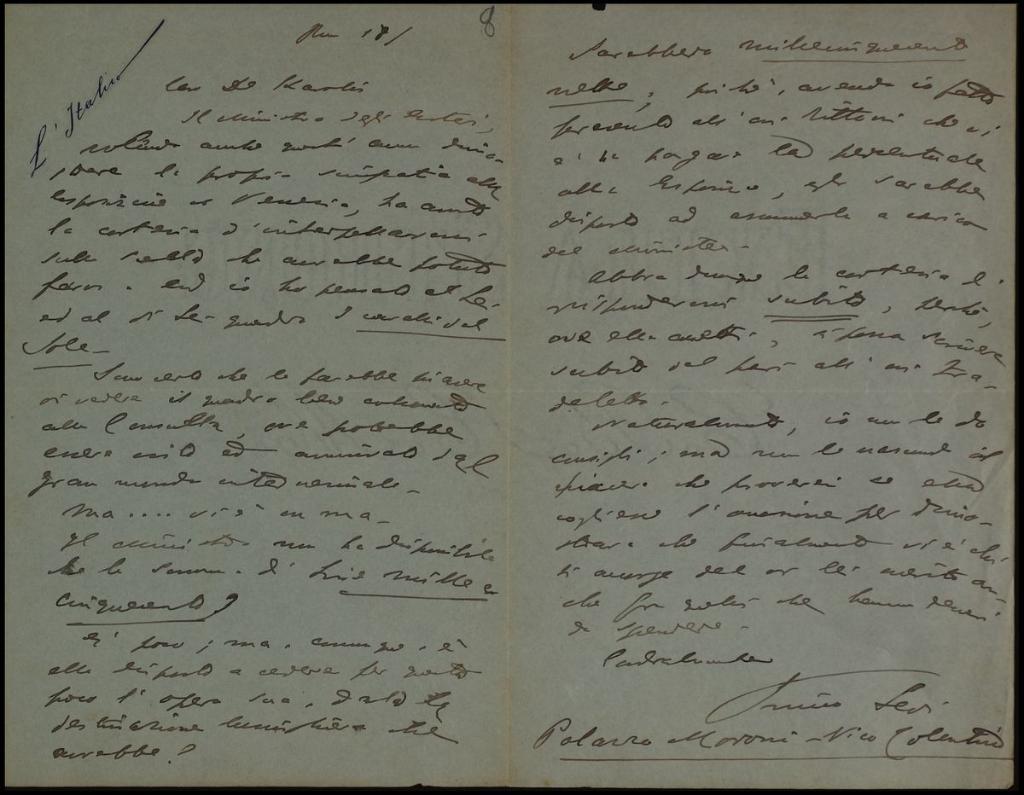 8
L'Italia
Caro De Karolis
Il Ministro degli Esteri,
volendo anche quest'anno dimo-
strare la propria simpatia alla
Esposizione di Venezia, ha avuto
la cortesia d'interpellarmi
sulla scelta che avrebbe potuto
farsi. Ed io ho pensato a Lei
ed al di Lei quadro I cavalli del
Sole.
Son certo che le farebbe piacere
di vedere il quadro bene collocato
alla Consulta, ove potrebbe
essere visto ed ammirato dal
gran mondo internazionale.
Ma.... vi è un ma.
Il Ministro non ha disponibile
che la somma di Lire mille e
cinquecento?
È poco; ma, comunque, è
ella disposto a cedere per questo
poco l'opera sua, data la
destinazione lusinghiera che
avrebbe?
Sarebbero millecinquecento
nette, poichè, avendo io fatto
presente all'on. Tittoni che vi
è da pagare la percentuale
alla Esposiz., egli sarebbe
disposto ad assumerla a carico
del Ministero.
Abbia dunque la cortesia di
rispondermi subito, perchè,
ove ella accetti, si possa scrivere
subito del pari all'on. Fra-
deletto.
Naturalmente, io non le do
consigli; ma non le nascondo il
piacere che proverei se ella
cogliesse l'occasione per dimo-
strare che finalmente vi è chi
si accorge del di lei merito an-
che fra quelli che hanno denari
da spendere.
Cordialmente
Primo Levi
Palazzo Moroni - Vico Tolentino